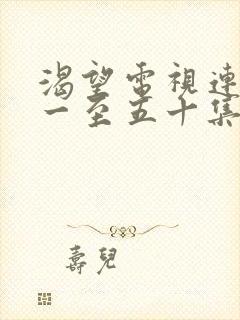 渴望電視連
一至五十集
壽兒